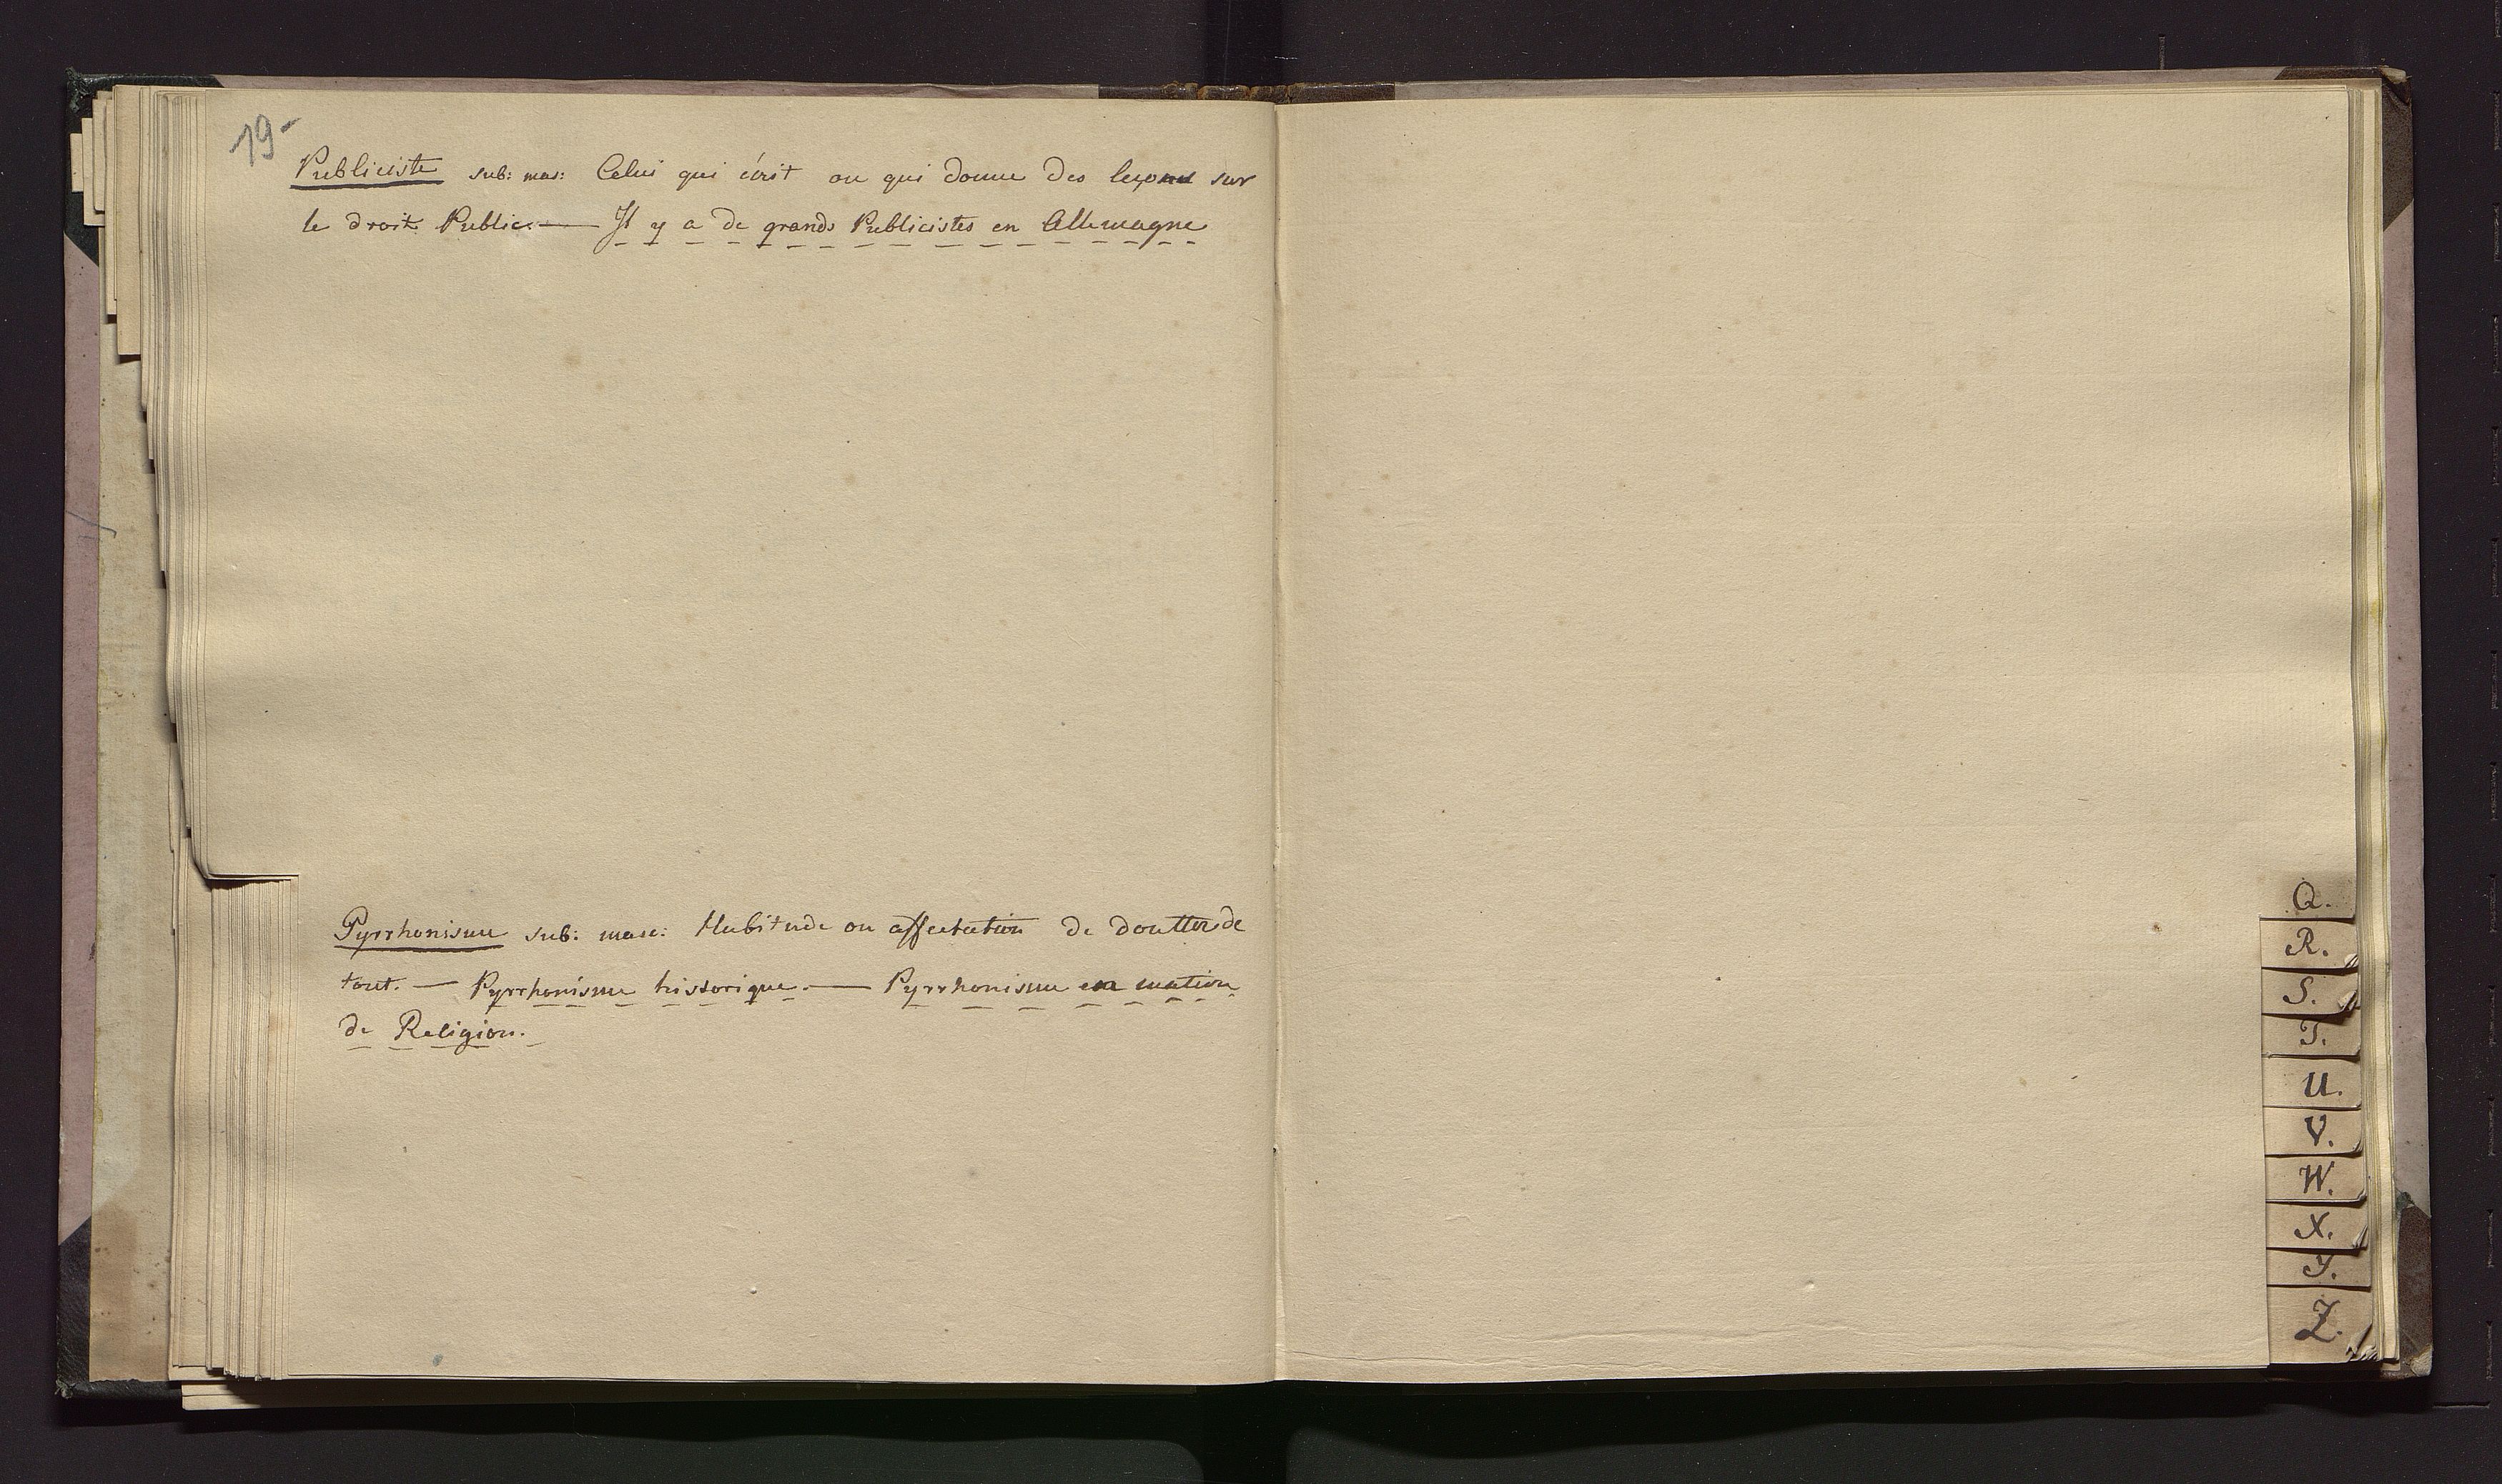 19-
Publiciste sub: mas: Celui qui écrit ou qui donne des leçons sur
le droit Public. — Il y a de grands Publicistes en Allemagne
Pyrrhonisme sub: masc: Habitude ou affectation de doutter de
tout. — Pyrrhonisme historique. — Pyrrhonisme en matière
de Religion.
Q.
R.
S.
T.
U.
V.
W.
X.
Y.
Z.